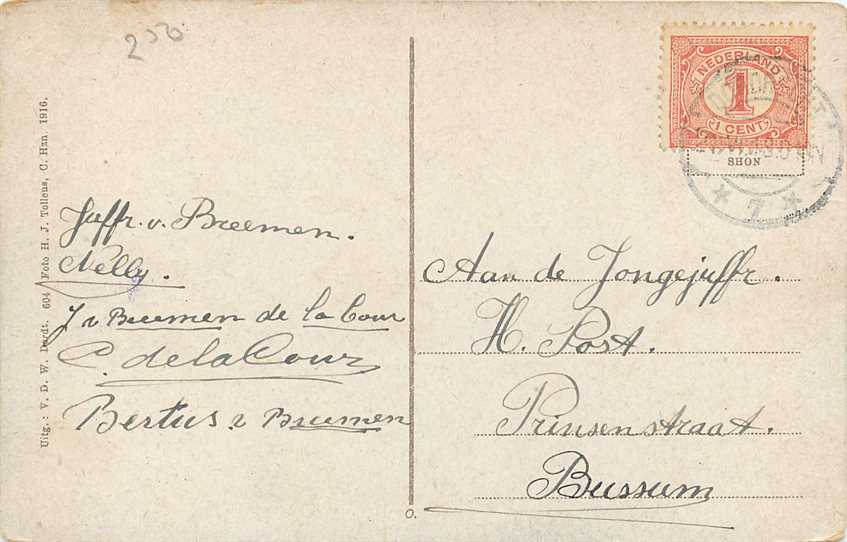 250
Uitg.: V. D. W. Dordt. 604 Foto H. J. Tolleus, C. Hzn. 1916.
Juffr. v. Breemen.
Nelly.
J v Breemen de la Cour
C. de la Cour
Bertus v Breemen
O.
NEDERLAND
1
1 CENT
SHON
7
Aan de Jongejuffr.
H. Post.
Prinsenstraat.
Bussum